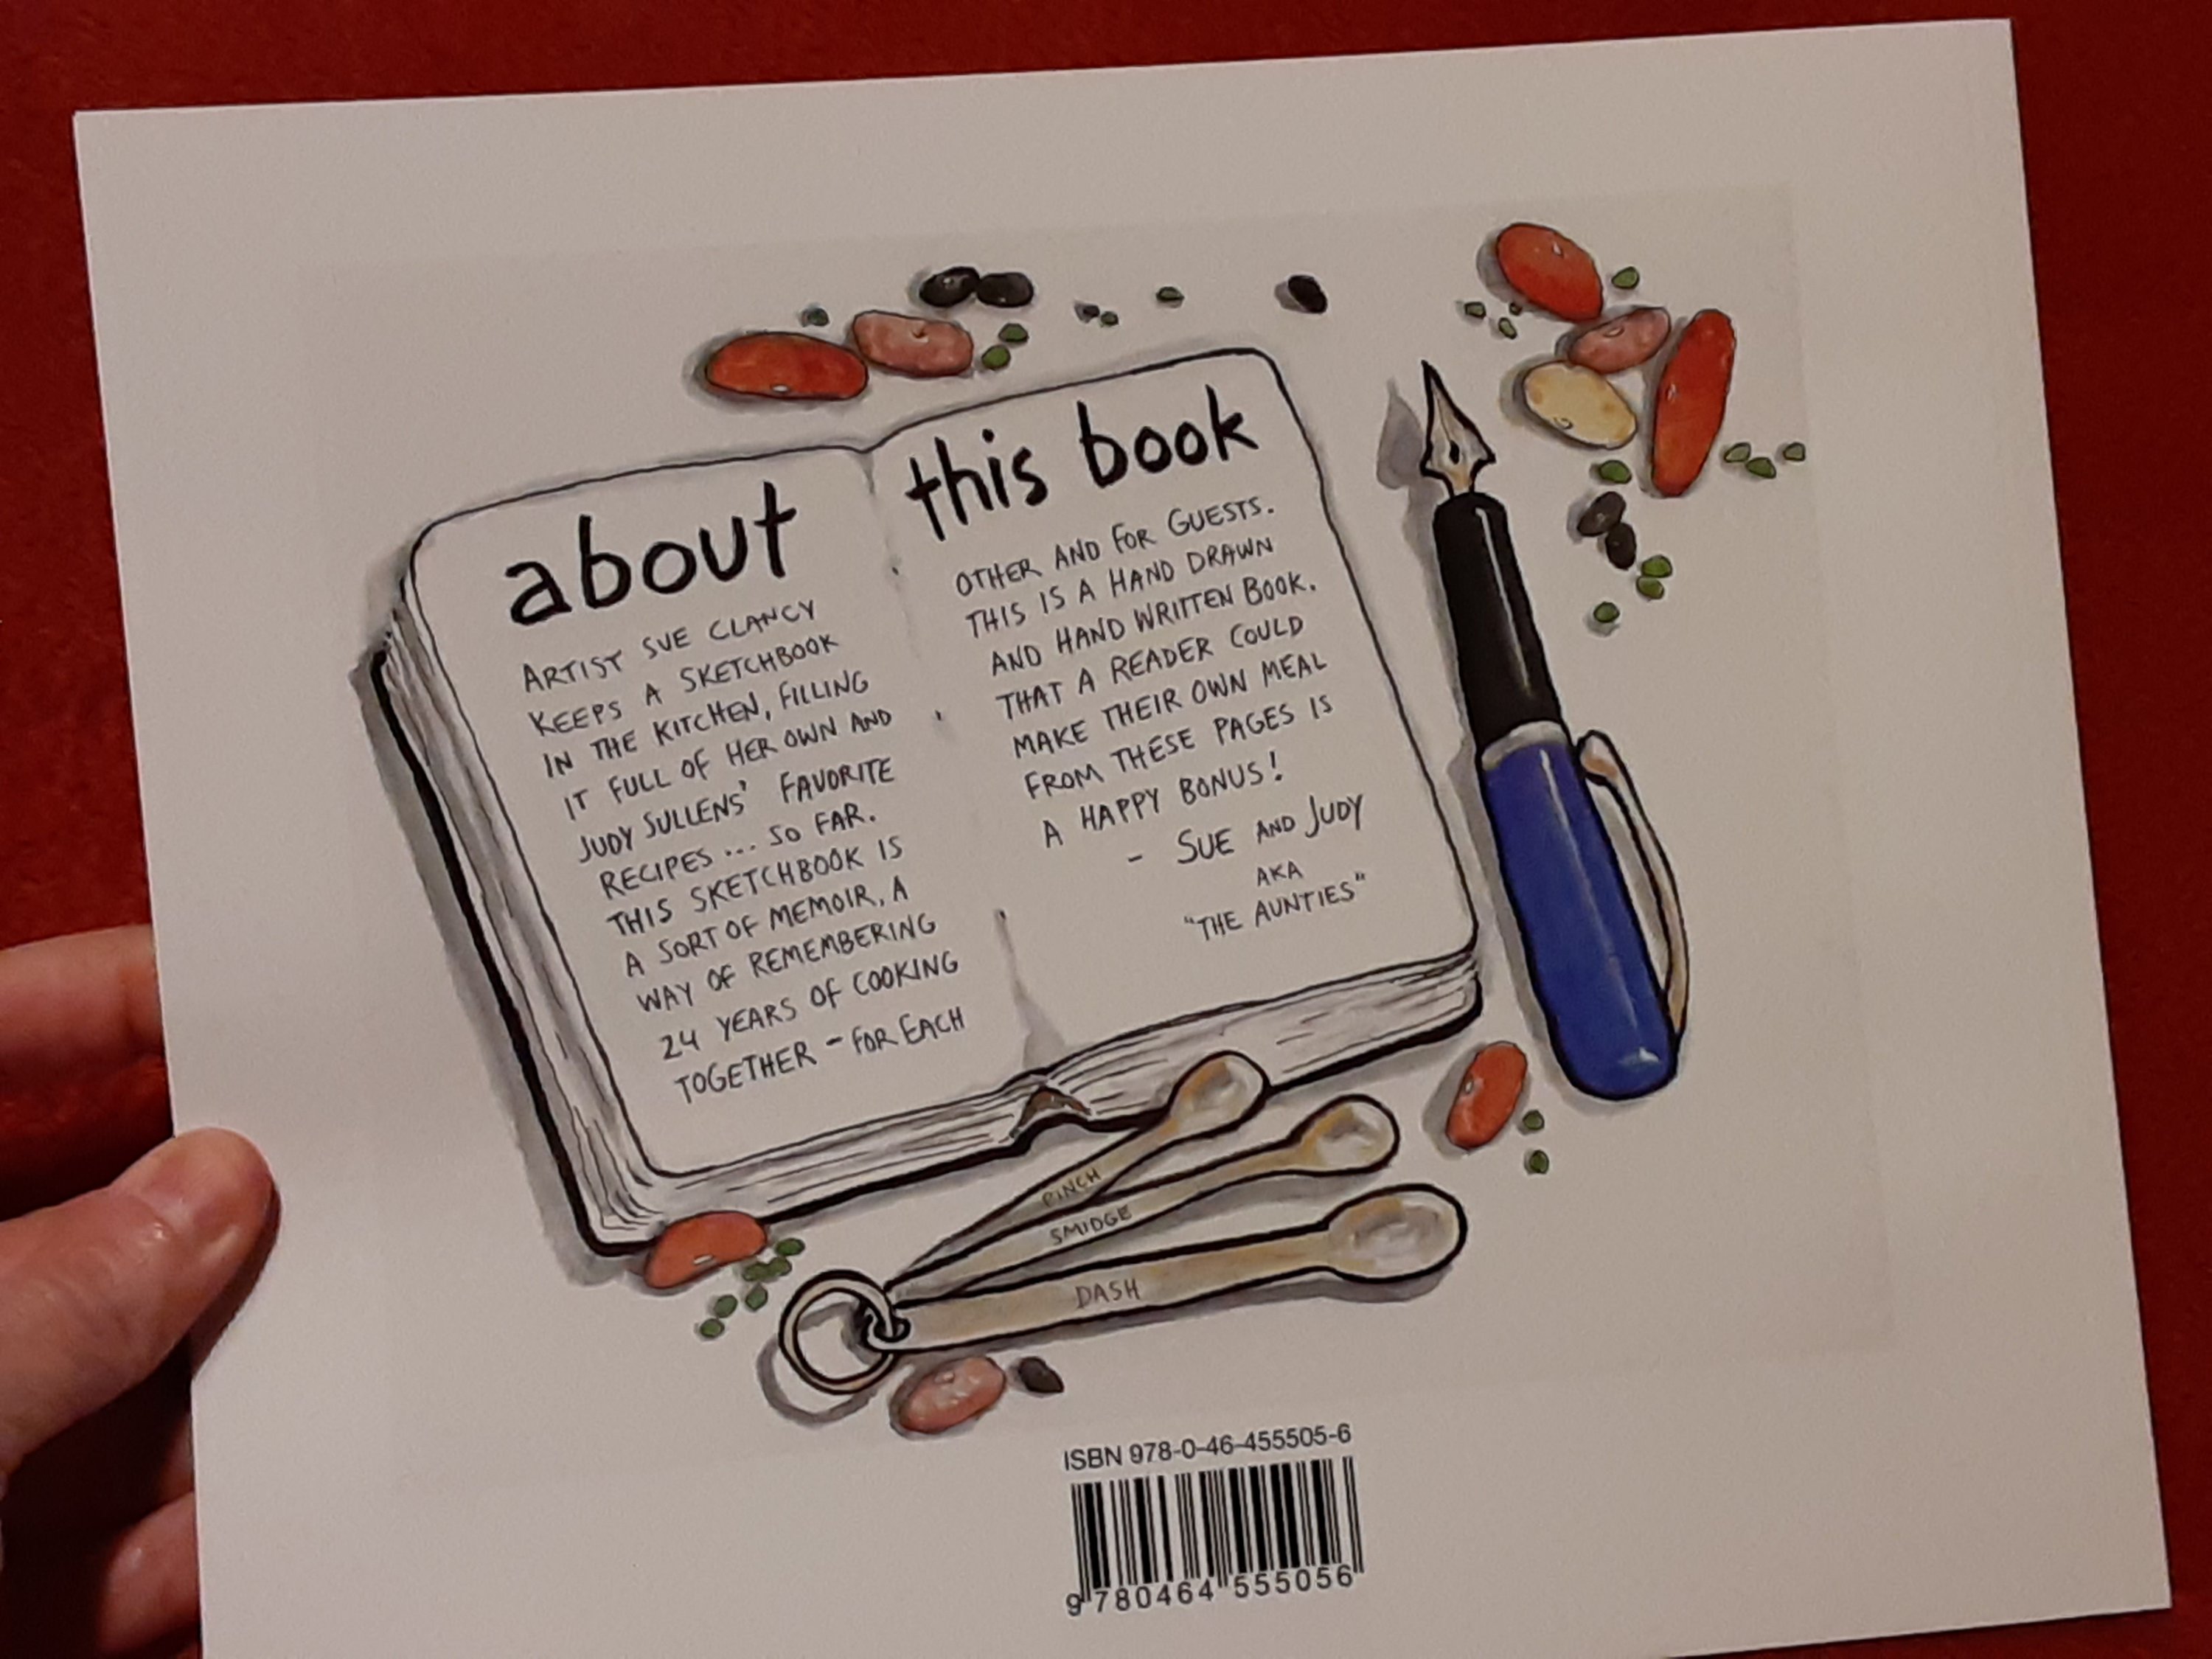 about
this book
ARTIST SUE CLANCY
KEEPS A SKETCHBOOK
IN THE KITCHEN, FILLING
IT FULL OF HER OWN AND
JUDY SULLENS' FAVORITE
RECIPES ... SO FAR.
THIS SKETCHBOOK IS
A SORT OF MEMOIR, A
WAY OF REMEMBERING
24 YEARS OF COOKING
TOGETHER - FOR EACH
OTHER AND FOR GUESTS.
THIS IS A HAND DRAWN
AND HAND WRITTEN BOOK.
THAT A READER COULD
MAKE THEIR OWN MEAL
FROM THESE PAGES IS
A HAPPY BONUS!
- SUE AND JUDY
AKA
"THE AUNTIES"
PINCH
SMIDGE
DASH
ISBN 978-0-46-455505-6
9 780464 555056